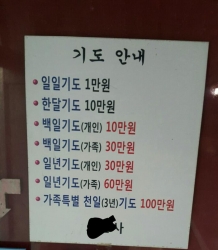 기도 안내
• 일일기도 1만원
• 한달기도 10만원
• 백일기도(개인) 10만원
• 백일기도(가족) 30만원
• 일년기도(개인) 30만원
• 일년기도(가족) 60만원
• 가족특별 천일(3년)기도 100만원
사